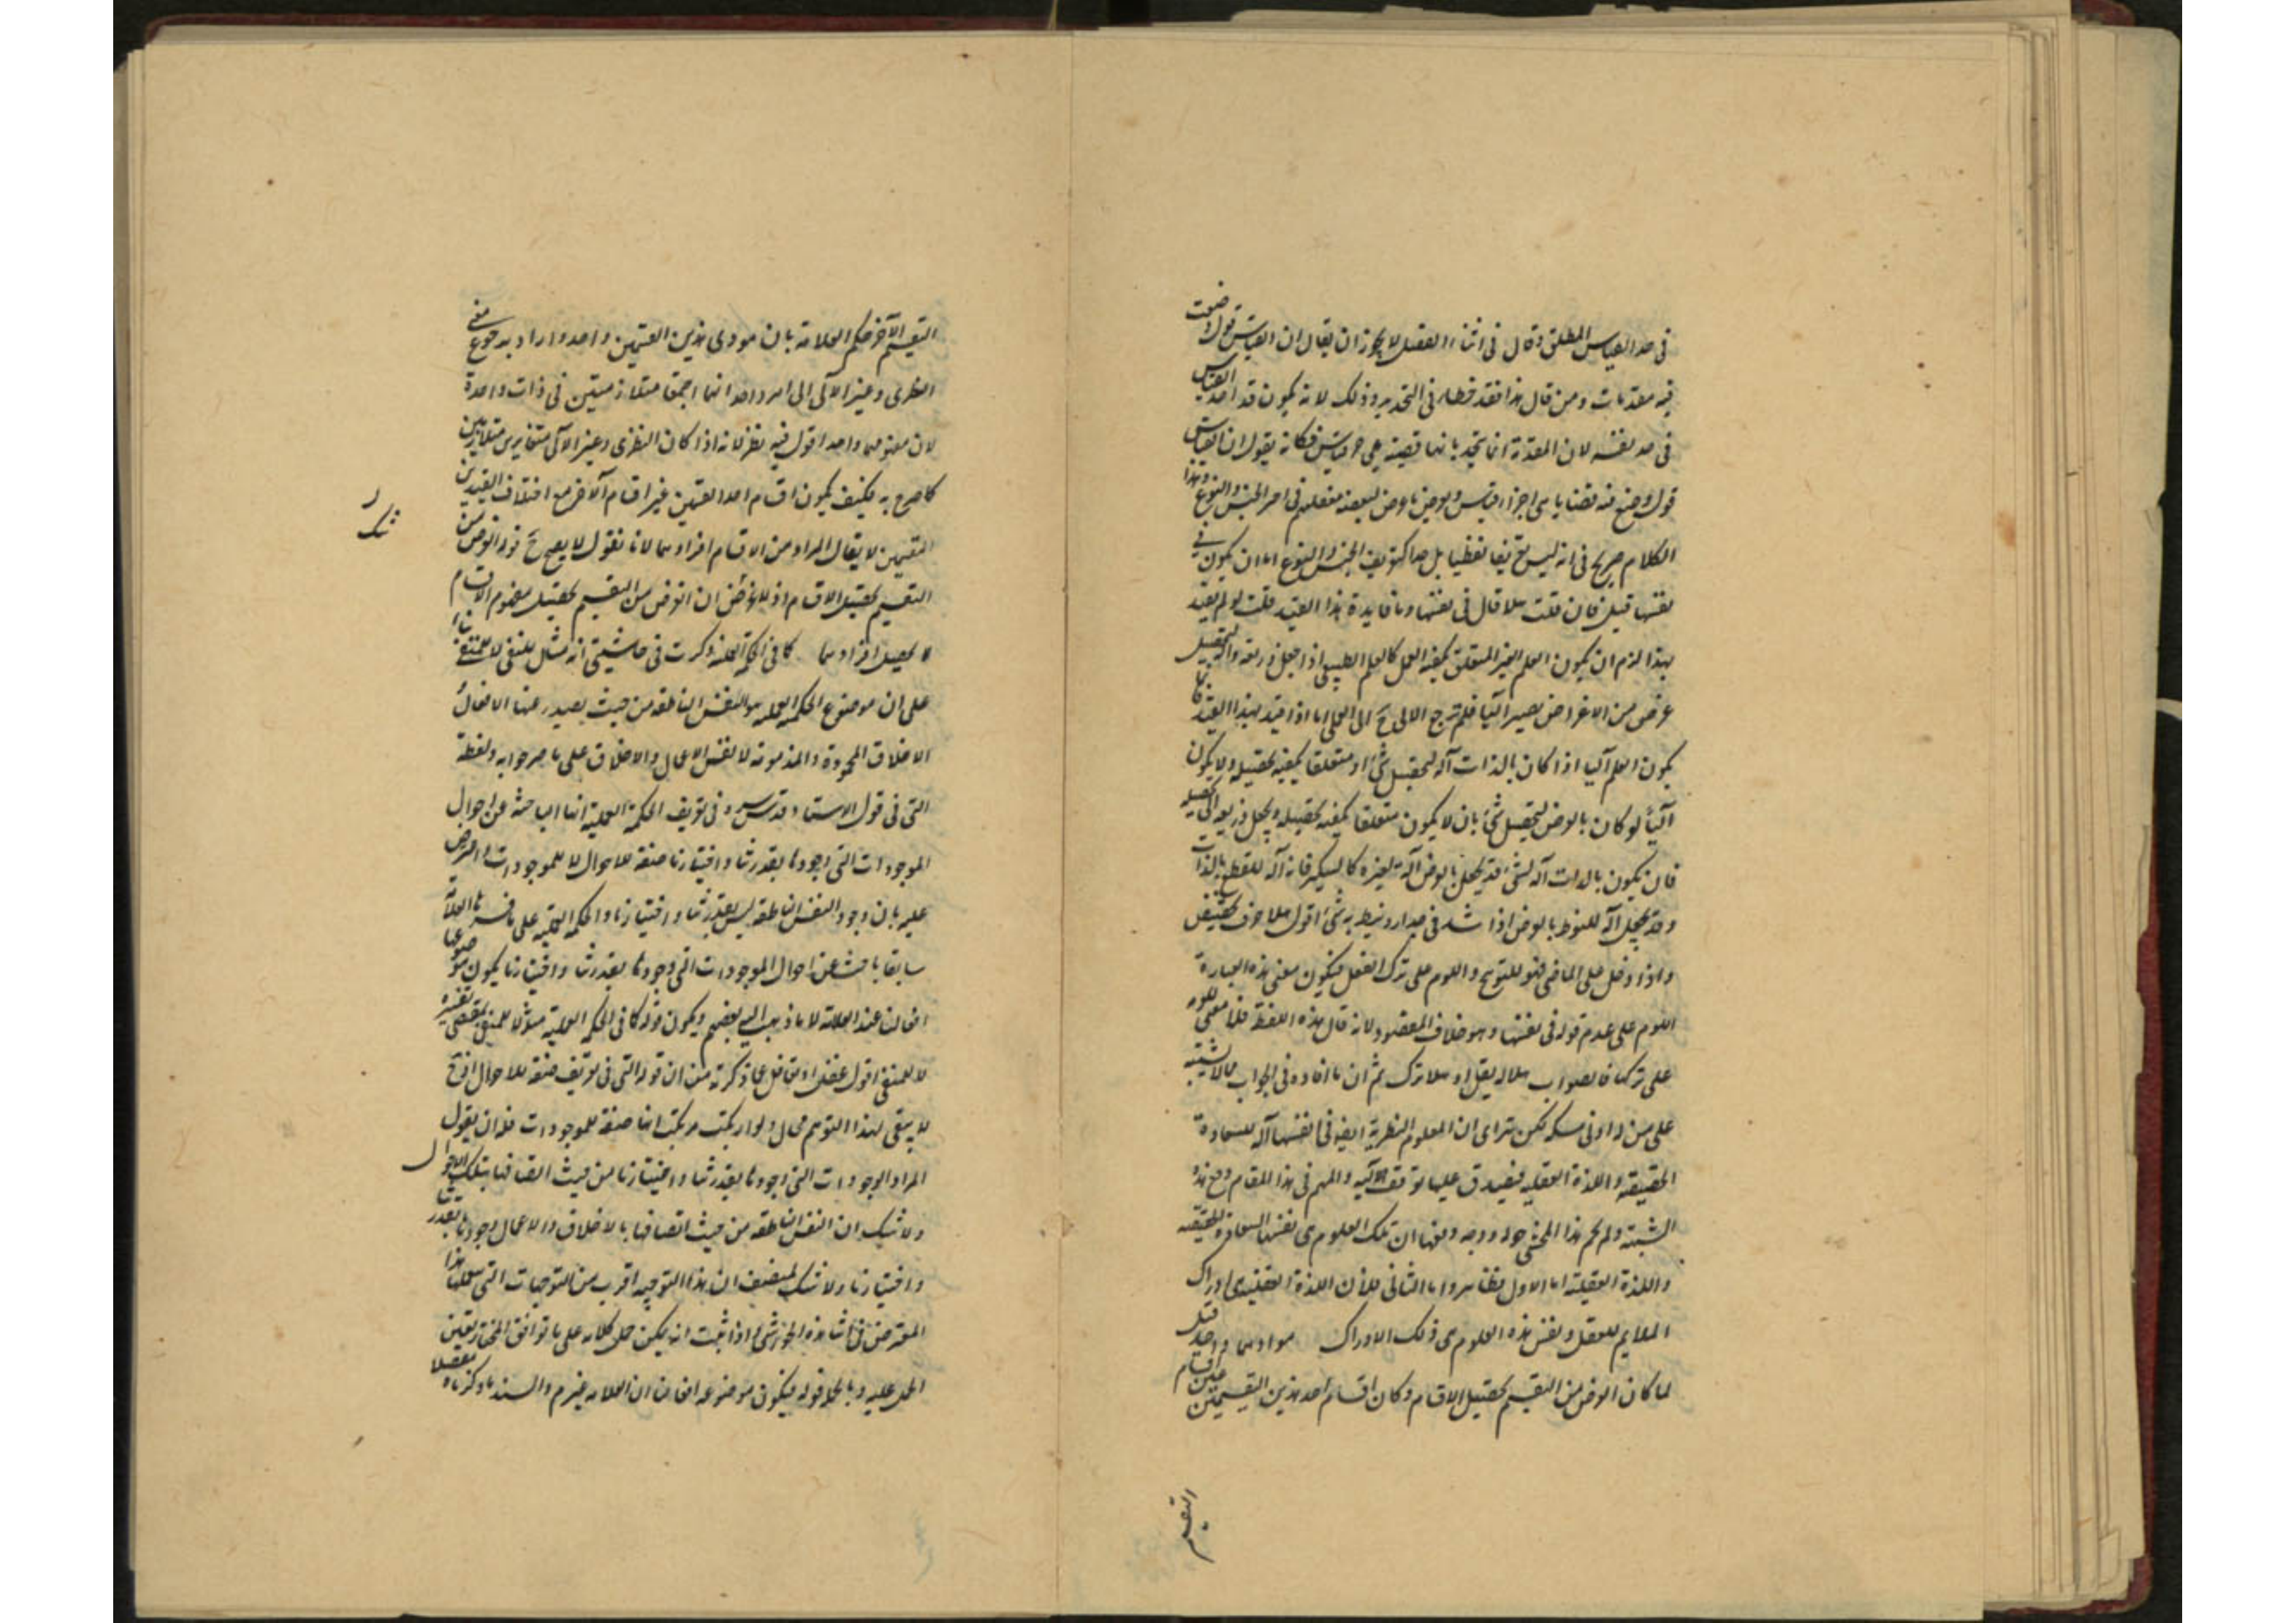 فى حد القياس المطلق وقال فى اثناء الفصل لا يجوز ان يقال ان القياس قول وضعت
فيه مقدمات ومن قال هذا فقد خطاء فى التحديد وذلك لانه يكون قد اخذ القياس
فى حد نفسه لان المقدمة انما تحد بانها قضية هى جزء قياس فكانه يقول ان القياس
قول وضع فيه قضايا هى اجزاء قياس وهذا
الكلام صريح فى انه ليس تعريفا لفظيا بل حدا كتعريف الجنس والنوع اما ان يكون فى
نفسها قيل فان قلت هلا قال فى نفسها وما فايدة هذا القيد قلت لو لم يقيد
بهذا لزم ان يكون العلم الغير المتعلق بكيفية العمل كالعلم الطبيعى اذا جعل ذريعة لتحصيل
غرض من الاغراض يصير آليا فلم يرجع الالى ح الى العملى اما اذا قيد بهذا القيد
يكون العلم آليا اذا كان بالذات آلة لتحصيل شئ او متعلقا بكيفية تحصيله ولا يكون
آليا لو كان بالعرض لتحصيل شئ بان لا يكون متعلقا بكيفية تحصيله ويجعل ذريعة الى تحصيله
فان يكون بالذات آلة لشئ قد يجعل بالعرض آلة لغيره كالسكين فانه آلة للقطع بالذات
وقد يجعل آلة للنوط بالعرض اذا شد فى جدار ونيط به شئ اقول هلا حرف تحضيض
واذا دخل على الماضى فهو للتوبيخ واللوم على ترك الفعل فيكون معنى هذه العبارة
اللوم على عدم قوله فى نفسها وهو خلاف المقصود لانه قال هذه اللفظة فلا معنى للوم
على تركها فالصواب هلا لم يقل او هلا ترك ثم ان ما افاده فى الجواب مما لا يشتبه
على من له ادنى مسكة لكن يتراى ان العلوم النظرية ايضا فى انفسها آلة للسعادة
الحقيقية واللذة العقلية فيصدق عليها تعريف الآلية والمهم فى هذا المقام دفع هذه
الشبهة ولم يحم هذا المحشى حوله ووجه دفعها ان تلك العلوم هى نفسها السعادة الحقيقية
واللذة العقلية اما الاول فظاهر واما الثانى فلان اللذة العقلية هى ادراك
الملايم للعقل ونفس هذه العلوم هى ذلك الادراك موادهما واحد قيل
لما كان الغرض من التقسيم تحصيل الاقسام وكان اقسام احد هذين التقسيمين عين اقسام
التقسيم
التقسيم الآخر حكم العلامة بان مودى هذين القسمين واحد واراد به رجوع معنى
النظرى وغير الآلى الى امر واحد انما اجتمعا متلازمتين فى ذات واحدة
لان مفهومهما واحد اقول فيه نظر لانه اذا كان النظرى وغير الآلى متغايرين متلازمين
كما صرح به فكيف يكون اقسام احد القسمين عين اقسام الآخر مع اختلاف القيدين
التقسيمين لا يقال المراد من الاقسام افرادهما لانا نقول لا يصح ح قوله الغرض من
التقسيم تحصيل الاقسام اذ الغرض من التقسيم تحصيل مفهوم الاقسام
لا تحصيل افرادهما كما فى الحكمة العملية ذكرت فى حاشيتى انه مثال للمنفى لا للنفى بناء
على ان موضوع الحكمة العملية هو النفس الناطقة من حيث يصدر عنها الافعال
الاخلاق المحمودة والمذمومة لا نفس الاعمال والاخلاق على ما صرحوا به ولفظة
التى فى قول الاستاد قدس سره فى تعريف الحكمة العملية انها الباحثة عن احوال
الموجودات التى وجودها بقدرتنا واختيارنا صفة للاحوال لا للموجودات واعترض
عليه بان وجود النفس الناطقة ليس بقدرتنا واختيارنا والحكمة العملية على ما فسرها العلامة
سابقا باحثة عن احوال الموجودات التى وجودها بقدرتنا واختيارنا يكون موضوعها
افعالنا عند العلامة لا ما ذهب اليه بعضهم ويكون قوله كما فى الحكمة العملية مثالا للمنفى بمقتضى تفسيره
لا للمنفى اقول غفل او تغافل عما ذكرته من ان قوله التى فى تعريفه صفة للاحوال اذ ح
لا يبقى لهذا التوهم مجال ولو ارتكب مرتكب انها صفة للموجودات فله ان يقول
المراد الموجودات التى وجودها بقدرتنا واختيارنا من حيث اتصافها بتلك الاحوال
ولا شك ان النفس الناطقة من حيث اتصافها بالاخلاق والاعمال وجودها بقدرتنا
واختيارنا ولا شك لمنصف ان هذا التوجيه اقرب من التوجيهات التى يتكلفها هذا
المعترض فى اثناء هذه الحواشى اذا ثبت انه يمكن حمل كلامه على ما توافق المحققين
الحمل عليه وبالجملة قوله فيكون موضوعه افعالنا ان العلامة غير م والسند ما ذكرناه مفصلا